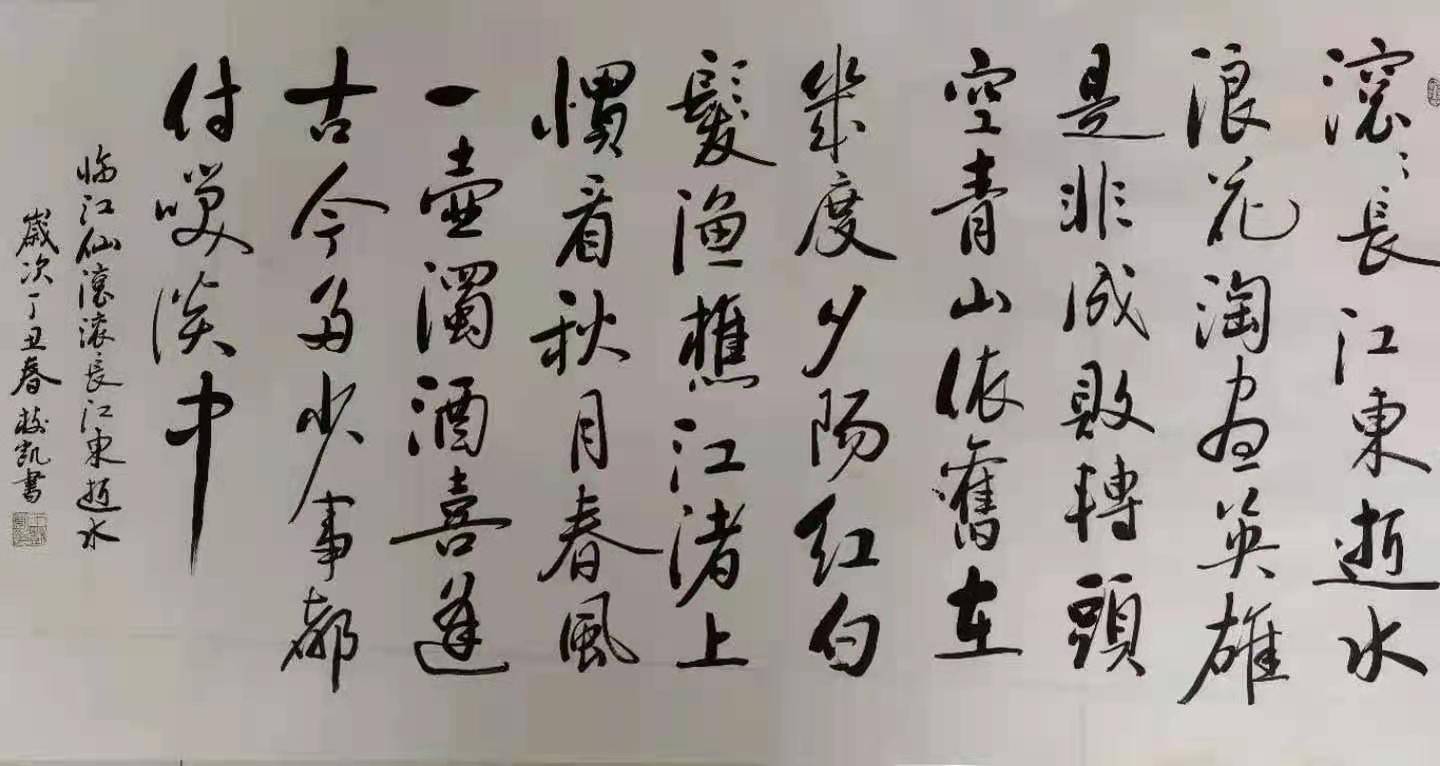 滚〻長江東逝水
浪花淘盡英雄
是非成敗轉頭
空青山依舊在
幾度夕陽紅白
髮漁樵江渚上
慣看秋月春風
一壺濁酒喜逢
古今多少事都
付笑談中
临江仙滚滚長江東逝水
歲次丁丑春 凱書